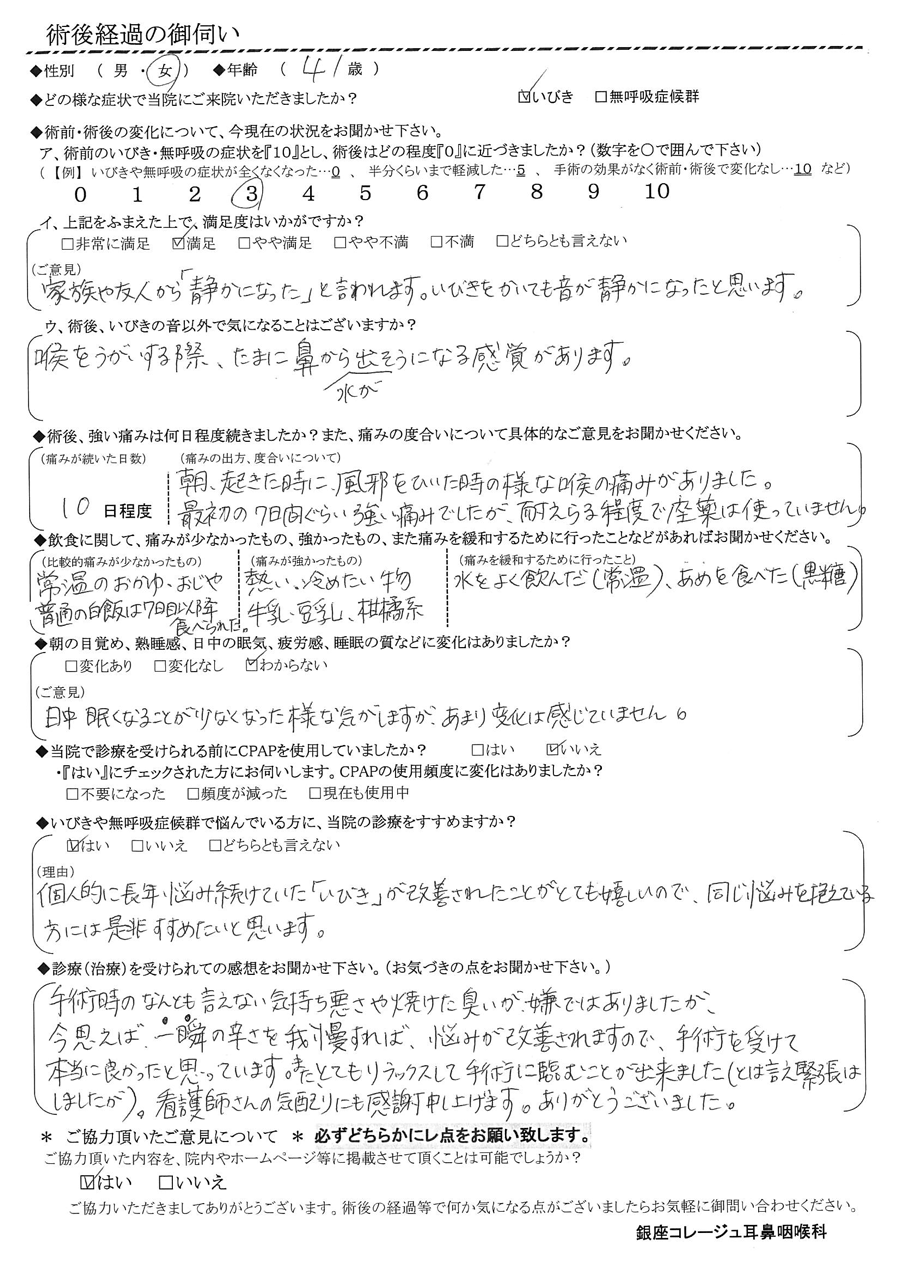 術後経過の御伺い
◆性別 ( 男 ・ 女 ) ◆年齢 ( 41 歳 )
◆どの様な症状で当院にご来院いただきましたか? ☑いびき □無呼吸症候群
◆術前・術後の変化について、今現在の状況をお聞かせ下さい。
ア、術前のいびき・無呼吸の症状を『10』とし、術後はどの程度『0』に近づきましたか?(数字を〇で囲んで下さい)
(【例】いびきや無呼吸の症状が全くなくなった…0 、 半分くらいまで軽減した…5 、 手術の効果がなく術前・術後で変化なし…10 など)
0 1 2 3 4 5 6 7 8 9 10
イ、上記をふまえた上で、満足度はいかがですか?
□非常に満足 ☑満足 □やや満足 □やや不満 □不満 □どちらとも言えない
(ご意見)
家族や友人から「静かになった」と言われます。いびきをかいても音が静かになったと思います。
ウ、術後、いびきの音以外で気になることはございますか?
喉をうがいする際、たまに鼻から出そうになる感覚があります。
水が
◆術後、強い痛みは何日程度続きましたか?また、痛みの度合いについて具体的なご意見をお聞かせください。
(痛みが続いた日数) (痛みの出方、度合いについて)
朝、起きた時に、風邪をひいた時の様な喉の痛みがありました。
10 日程度 最初の7日間ぐらい強い痛みでしたが、耐えらる程度で座薬は使っていません。
◆飲食に関して、痛みが少なかったもの、強かったもの、また痛みを緩和するために行ったことなどがあればお聞かせください。
(比較的痛みが少なかったもの) (痛みが強かったもの) (痛みを緩和するために行ったこと)
常温のおかゆ、おじや 熱い、冷めたい物 水をよく飲んだ(常温)、あめを食べた(黒糖)
普通の白飯は7日目以降 牛乳・豆乳、柑橘系
食べられた。
◆朝の目覚め、熟睡感、日中の眠気、疲労感、睡眠の質などに変化はありましたか?
□変化あり □変化なし ☑わからない
(ご意見)
日中 眠くなることが少なくなった様な気がしますが、あまり変化は感じていません。
◆当院で診療を受けられる前にCPAPを使用していましたか? □はい ☑いいえ
・『はい』にチェックされた方にお伺いします。CPAPの使用頻度に変化はありましたか?
□不要になった □頻度が減った □現在も使用中
◆いびきや無呼吸症候群で悩んでいる方に、当院の診療をすすめますか?
☑はい □いいえ □どちらとも言えない
(理由)
個人的に長年悩み続けていた「いびき」が改善されたことがとても嬉しいので、同じ悩みを抱えている
方には是非すすめたいと思います。
◆診療(治療)を受けられての感想をお聞かせ下さい。(お気づきの点をお聞かせ下さい。)
手術時のなんとも言えない気持ち悪さや焼けた臭いが嫌ではありましたが、
今思えば、一瞬の辛さを我慢すれば、悩みが改善されますので、手術を受けて
本当に良かったと思っています。また、とてもリラックスして手術に臨むことが出来ました(とは言え緊張は
しましたが)。看護師さんの気配りにも感謝申し上げます。ありがとうございました。
* ご協力頂いたご意見について * 必ずどちらかにレ点をお願い致します。
ご協力頂いた内容を、院内やホームページ等に掲載させて頂くことは可能でしょうか?
☑はい □いいえ
ご協力いただきましてありがとうございます。術後の経過等で何か気になる点がございましたらお気軽に御問い合わせください。
銀座コレージュ耳鼻咽喉科